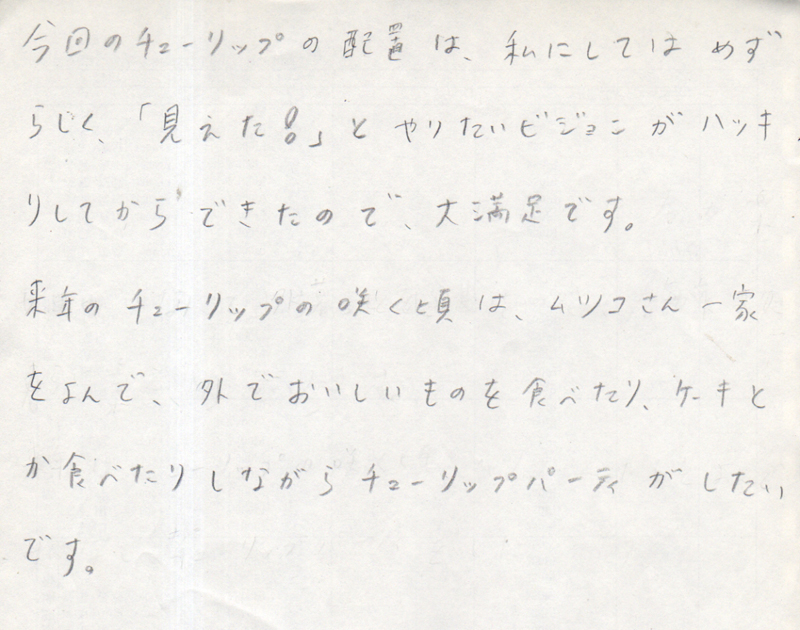 今回のチューリップの配置は、私にしてはめず
らじく、「見えた!」とやりたいビジョンがハッキ
リしてからできたので、大満足です。
来年のチューリップの咲く頃は、ムツコさん一家
をよんで、外でおいしいものを食べたり、ケーキと
か食べたりしながらチューリップパーティがしたい
です。